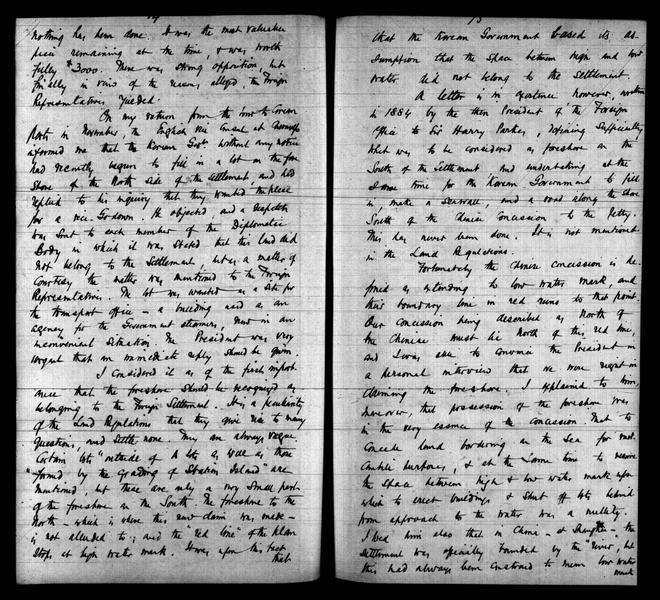 14
nothing has been done. It was the most valuable
piece remaining at the time, & was worth
fully $3000. There was strong opposition, but
finally in view of the reasons alleged, the Foreign
Representatives yielded.
On my return from the tour to Corean
Ports in November, the English Vice Consul at
informed me that the Korean Govt. without any notice
had recently begun to fill in a lot on the fore
shore of the North side of the Settlement and had
replied to his inquiry that they wanted the place
for a rice-Godown. He objected, and a despatch
was sent to each member of the Diplomatic
Body in which it was stated that this land did
not belong to the Settlement, but as a matter of
courtesy the matter was mentioned to the Foreign
Representatives. The lot was wanted as a site for
the transport office - a building used as an
agency for the Government steamers, now in an
inconvenient situation. The President was very
urgent that an immediate reply should be given.
I considered it as of the first import
ance that the foreshore should be recognized as
belonging to the Foreign Settlement. It is a peculiarity
of the Land Regulations that they give rise to many
questions, and settle none. They are always vague.
Certain lots "outside of A lots as well as those
formed by the grading of Station Island" are
mentioned, but these are only a very small part
of the foreshore on the South. The foreshore to the
North - which is where this new claim was made -
is not alluded to; and the "red line" of the plan
stops at high water mark. It was upon this fact
that
15
that the Korean Government based its as-
sumption that the space between high and low
water did not belong to the Settlement.
A letter is in existence however, written
in 1884 by the then President of the Foreign
Office to Sir Harry Parkes, defining sufficiently
what was to be considered as foreshore on the
South of the Settlement and undertaking at the
same time for the Korean Government to fill
in, make a seawall, and a road along the shore
South of the Chinese Concession to the Jetty.
This has never been done. It is not mentioned
in the Land Regulations.
Fortunately the Chinese concession is de-
fined as extending to low water mark, and
their boundary line in red runs to that point.
Our concession being described as North of
the Chinese must lie North of this red line,
and I was able to convince the President in
a personal interview that we were right in
claiming the foreshore. I explained to him,
moreover, that possession of the foreshore was
in the very essence of the concession. That to
concede land bordering on the Sea for mer-
cantile purposes, & at the same time to reserve
the space between high & low water mark upon
which to erect buildings, & shut off lots behind
from approach to the water was a nullity.
I told him also that in China - at Shanghai - the
settlement was specially bounded by the "river", but
this had always been construed to mean low water
mark